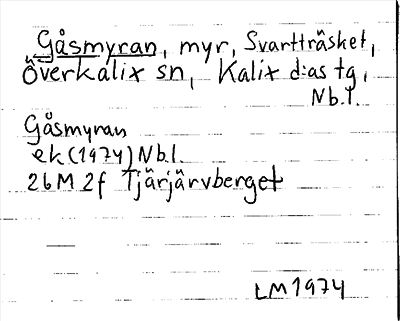 Gåsmyran, myr, Svartträsket,
Överkalix sn, Kalix d:as tg,
Nb.l.
Gåsmyran
ek (1974) Nb.l.
26M 2f Tjärjärvberget
LM 1974